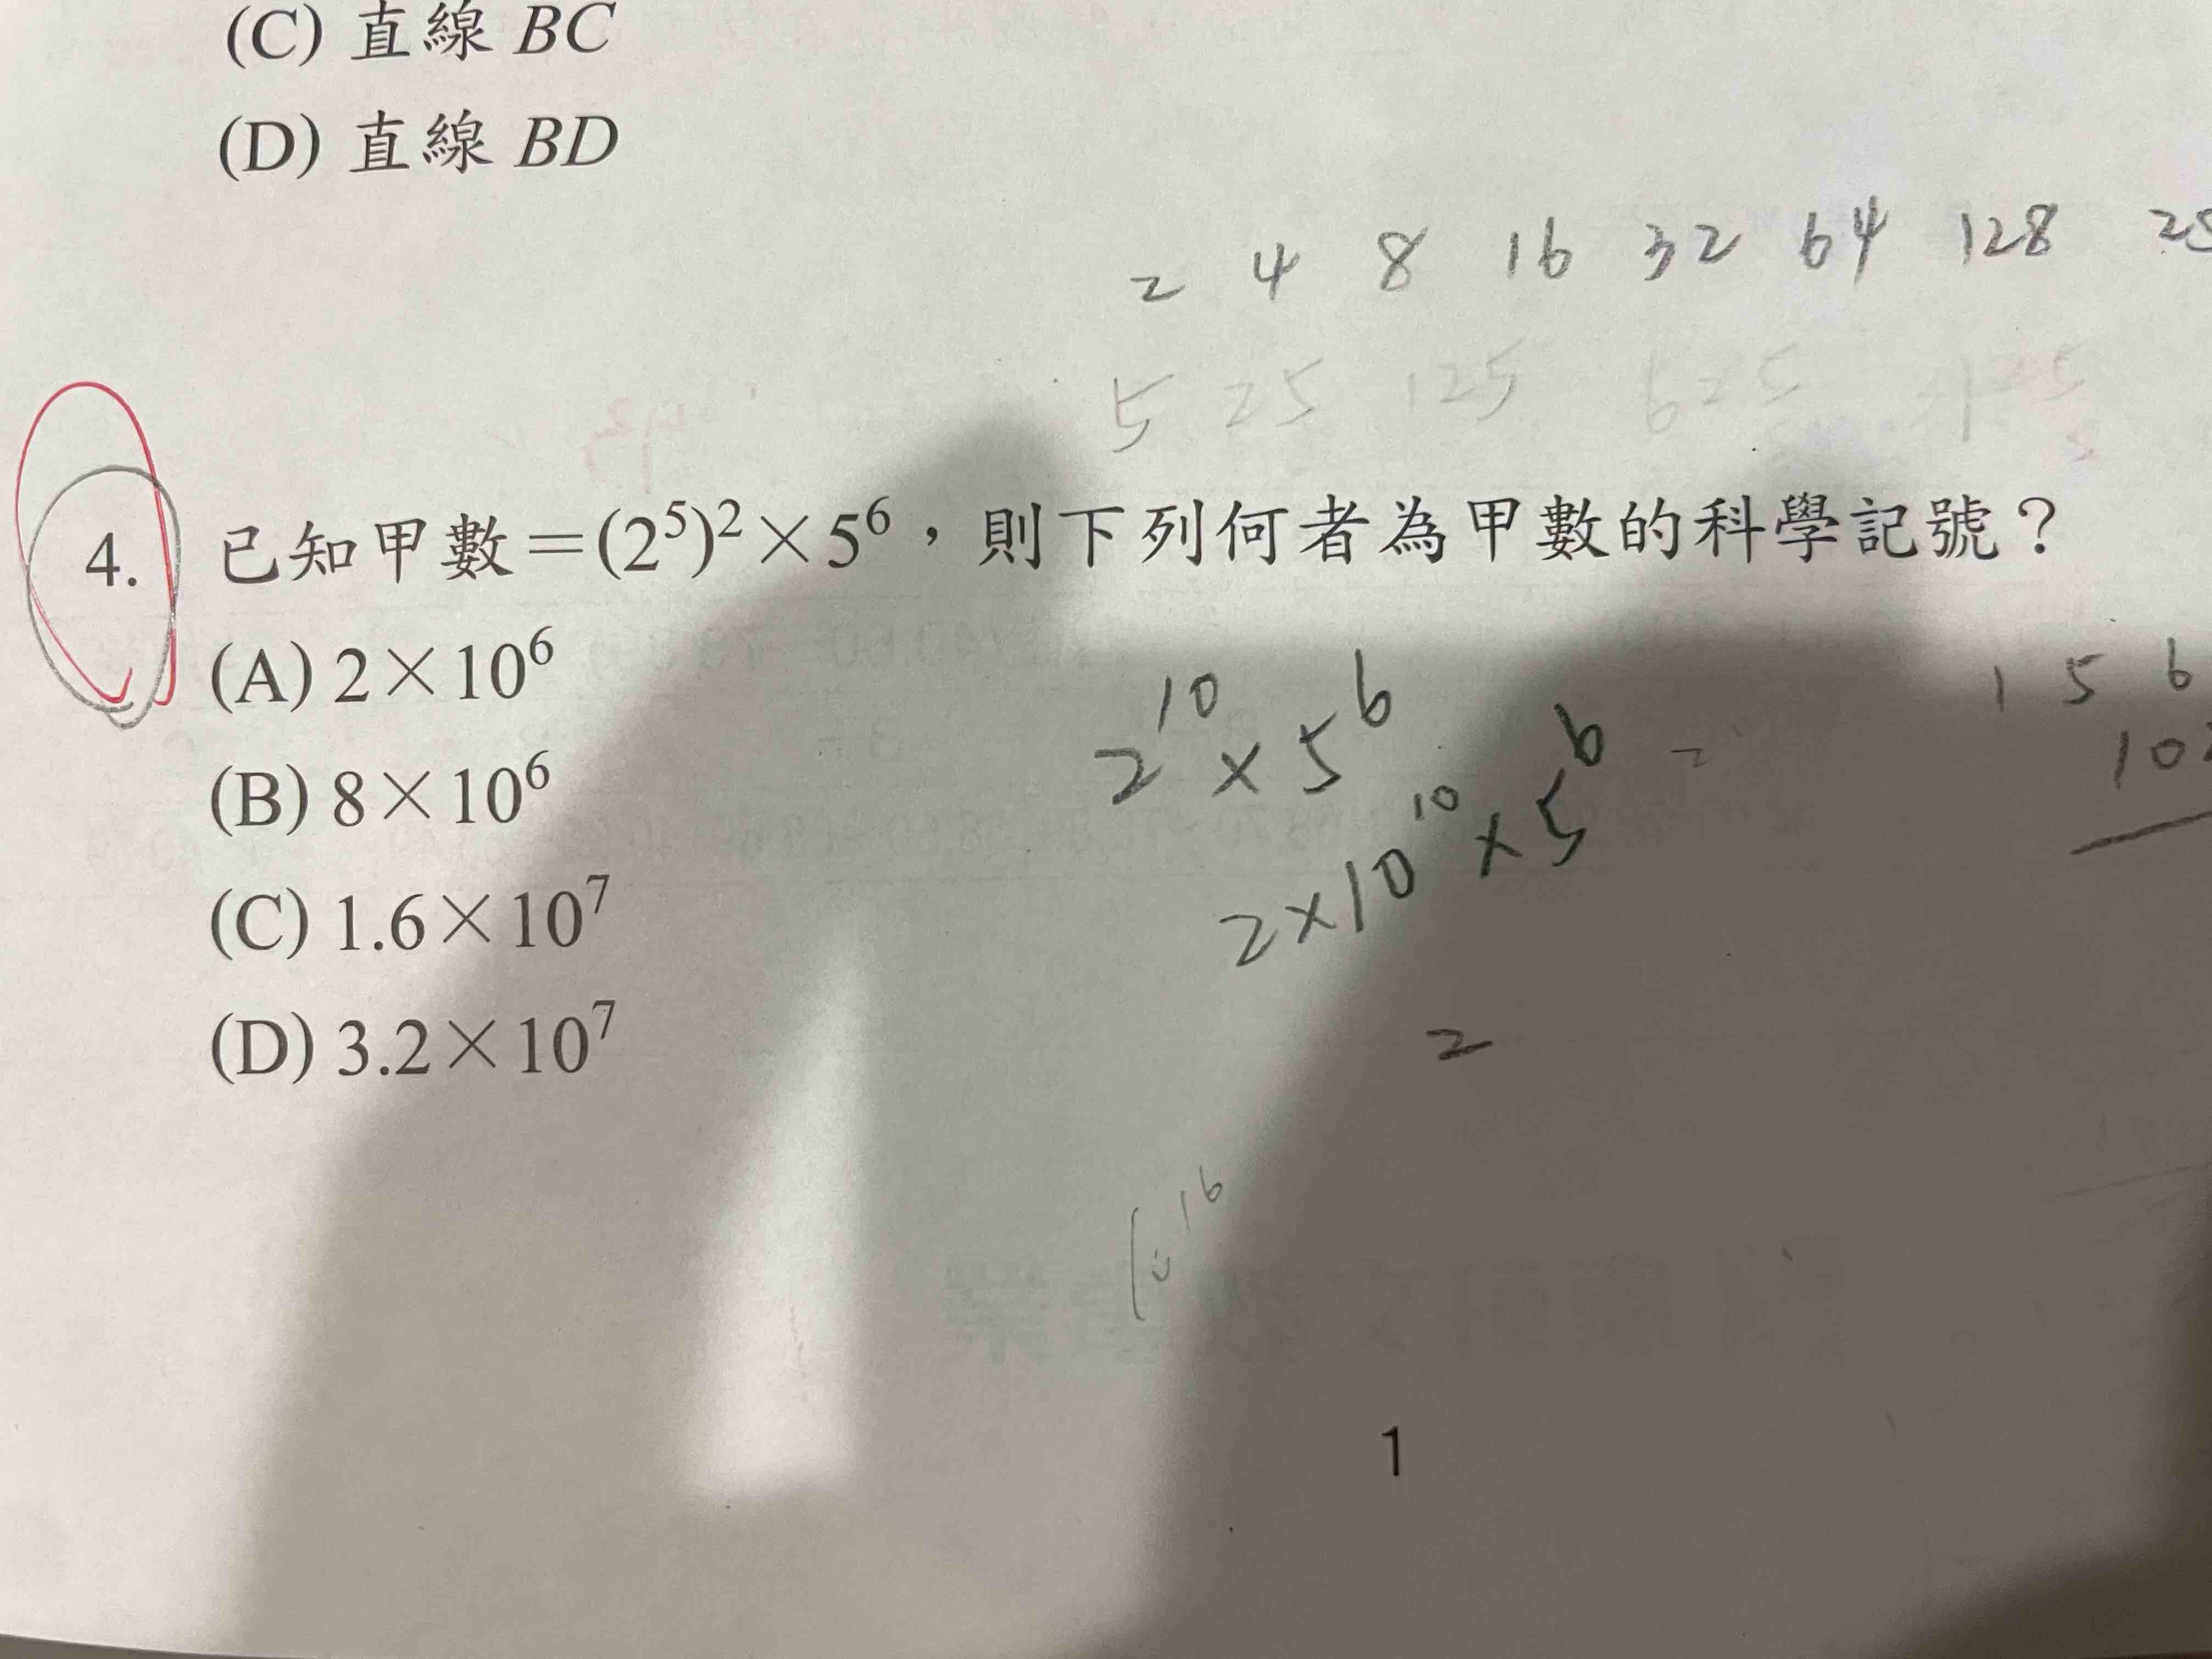 (C) 直線 BC
(D) 直線 BD
2 4 8 16 32 64 128
5 25 125 625
4. 已知甲數＝(2⁵)²×5⁶，則下列何者為甲數的科學記號？
(A) 2×10⁶
(B) 8×10⁶
(C) 1.6×10⁷
(D) 3.2×10⁷
2¹⁰×5⁶
2×10¹⁰×5⁶
2
1 5 6
10
16
1